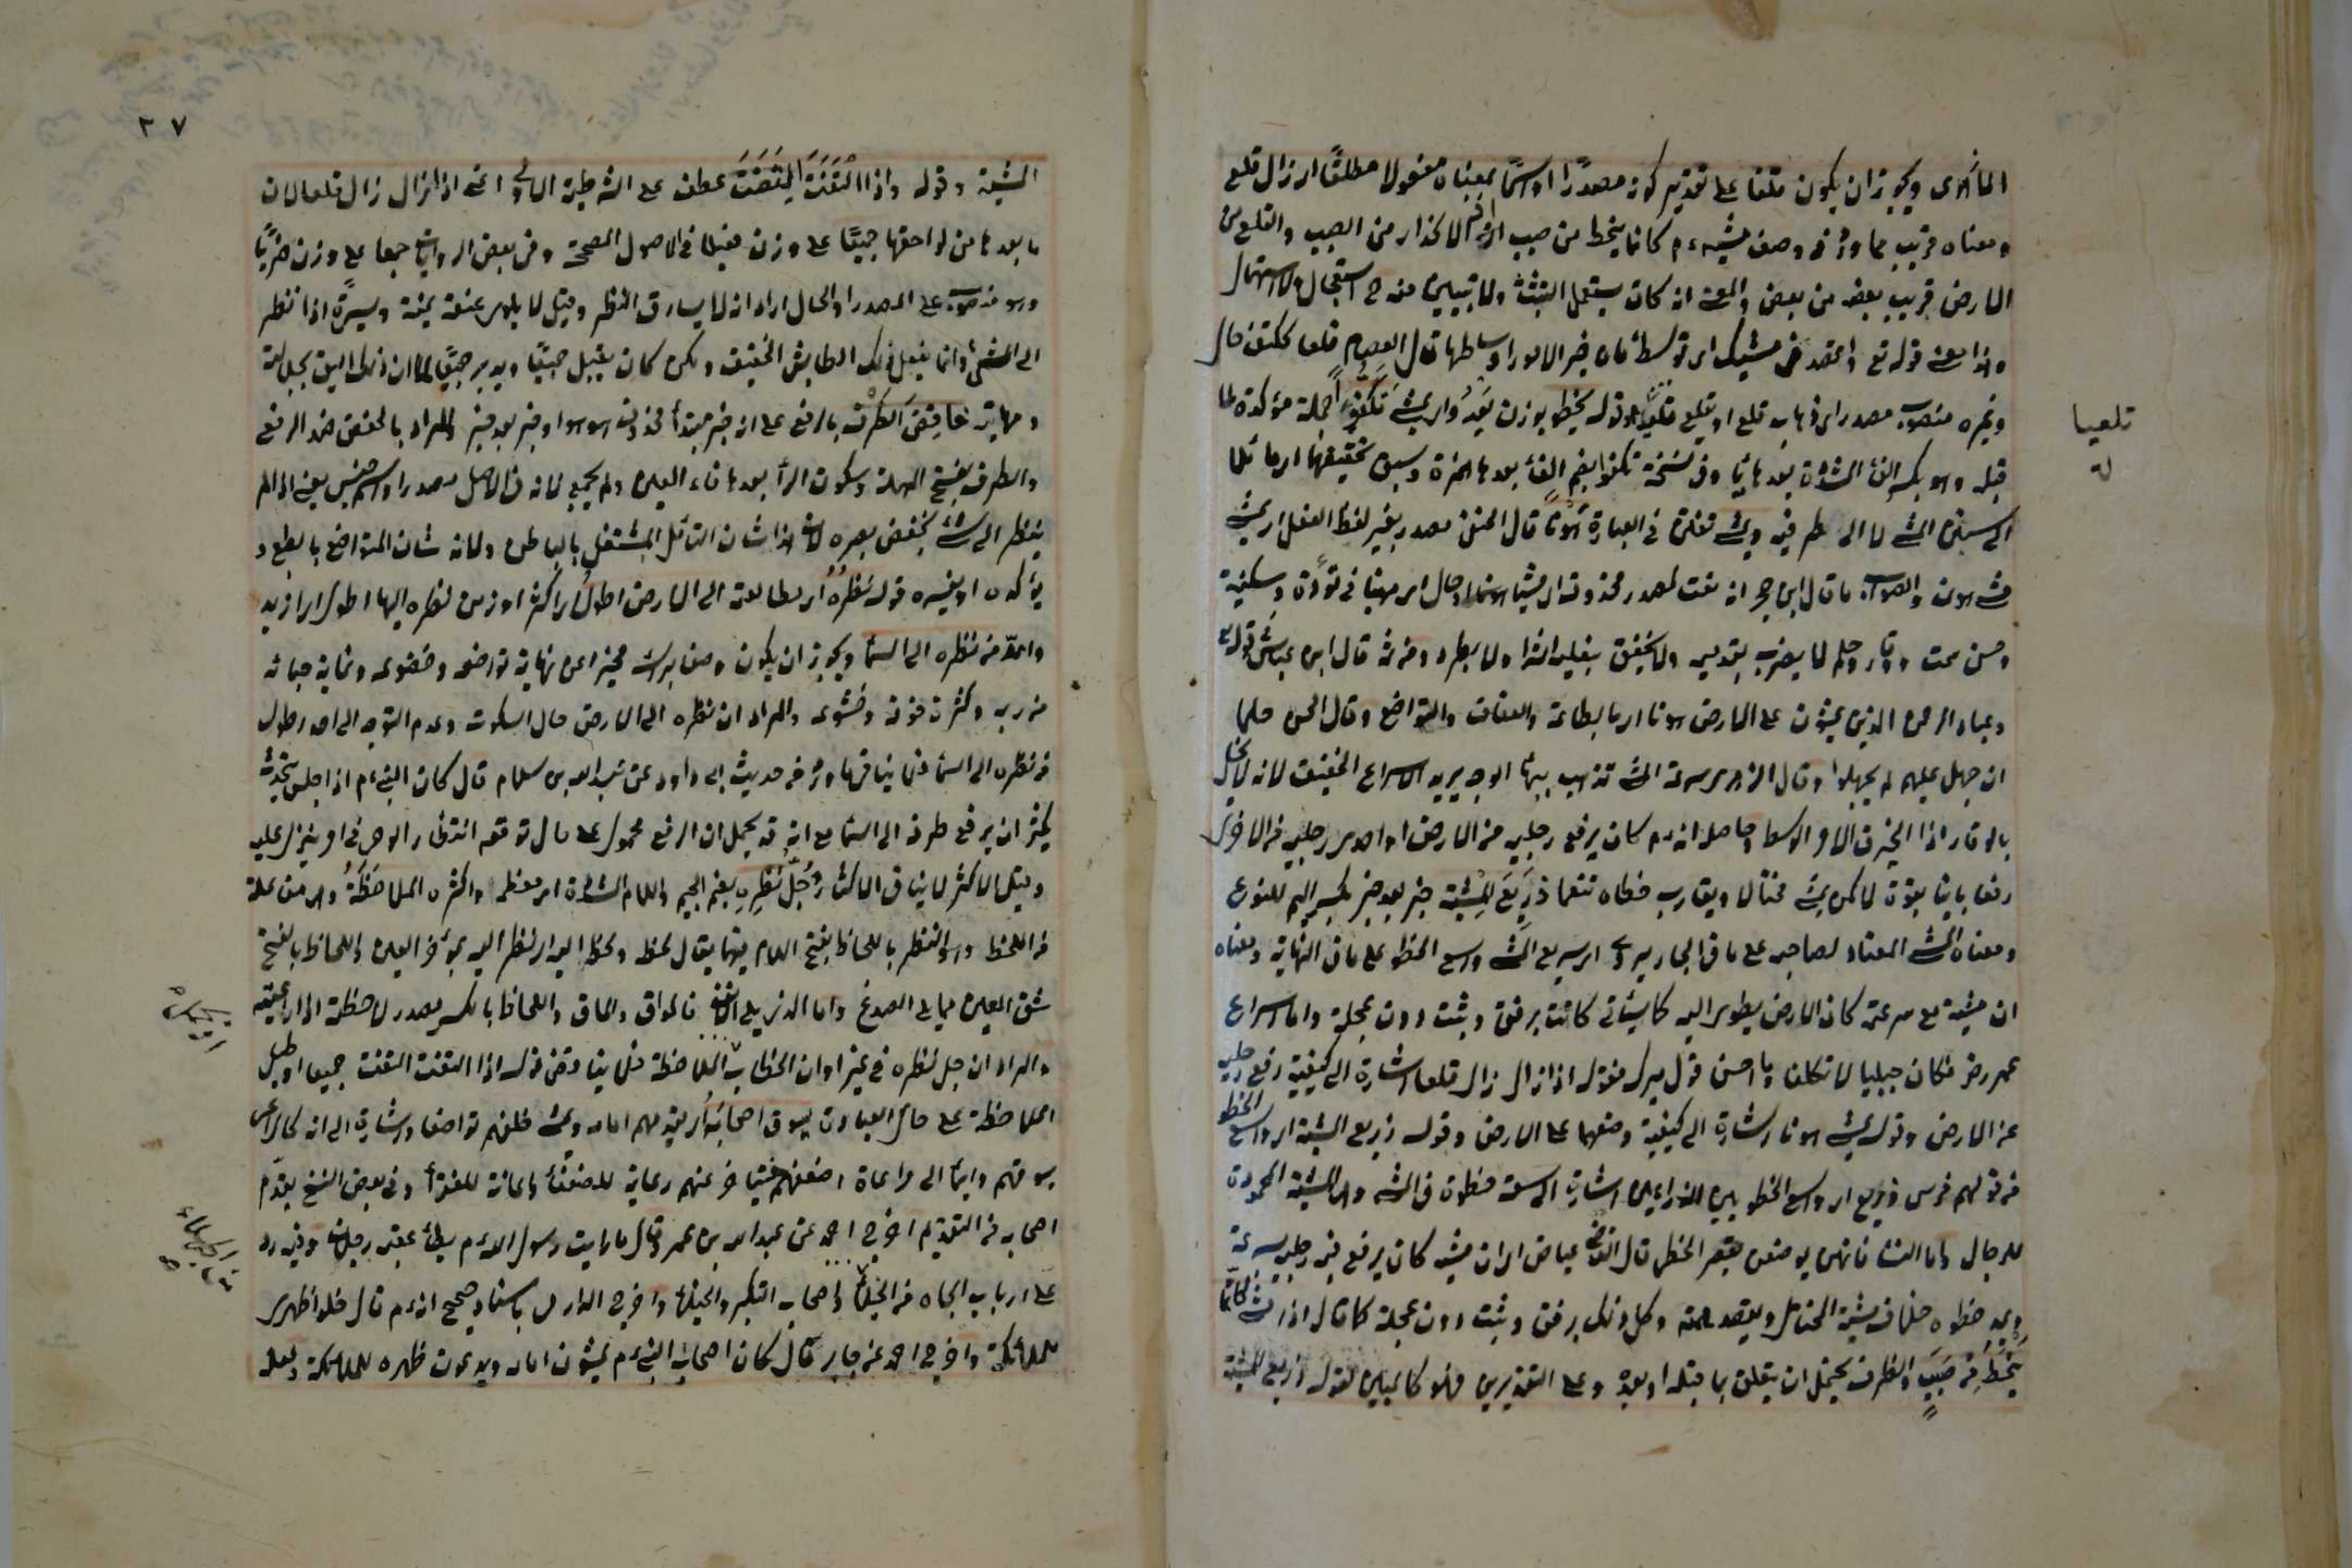 ويجوز ان يكون قلعا على تقدير كونه مصدرًا او اسمًا بمعناه مفعولا مطلقًا اى زال قلع
ومعناه قريب مما ورد فى وصف مشيه ءم كانما ينحط من صبب الانحدار من الصبب والقلع من
الارض قريب بعضه من بعض والمعنى انه كان يستعمل التثبت ولا يتبين منه ح استعجال ولا استمهال
وهذا معنى قوله تع واقصد فى مشيك اى توسط فان خير الامور اوساطها قال العصام قلعا ككتف حال
وغيره منصوب مصدر اى ذهاب قلع او تقلع قلعيا قوله يخطو بوزن يعدو اى يمشى تكفؤًا جملة مؤكدة لما
قبله وهو بكسر الفاء المشددة بعدها يا وفى نسخة تكفؤا بضم الفاء بعدها همزة وسبق تحقيقها اى مائلا
الى سنن المشى لا الى طرفيه ويمشى تفنن فى العبارة هونا قال الحنفى مصدر بغير لفظ الفعل اى يمشى
مشى هون والصواب ما قال ابن حجر انه نعت لمصدر محذوف اى مشيا هونا او حال اى هينا فى تؤدة وسكينة
وحسن سمت ووقار وحلم لا يضرب بقدميه ولا يخفق بنعليه اشرا ولا بطرا ومن ثم قال ابن عباس فى قوله تع
وعباد الرحمن الذين يمشون على الارض هونا اى بالطاعة والعفاف والتواضع وقال الحسن حلما
ان جهل عليهم لم يجهلوا وقال الزهرى سرعة المشى تذهب ببهاء الوجه يريد الاسراع الخفيف لانه يخل
بالوقار اذا الخير فى الامر الوسط وحاصله انه ءم كان يرفع رجليه من الارض او احدى رجليه من الاخرى
رفعا بائنا بقوة لا كمن يمشى مختالا ويقارب خطاه تنعما ذريع المشية خبر بعد خبر بكسر الميم للنوع
ومعناه المشى المعتاد لصاحبه على ما فى الجاربردى اى سريع المشى واسع الخطو على ما فى النهاية ومعناه
ان مشيه مع سرعته كان الارض يطوى اليه كما سياتى كانت برفق وتثبت دون عجلة واما اسراع
عمر رض فكان جبليا لا تكلفا وما احسن قول ميرك فقوله اذا زال زال قلعا اشارة الى كيفية رفع رجليه
عن الارض وقوله يمشى هونا اشارة الى كيفية وضعهما على الارض وقوله ذريع المشية اى واسع الخطو
من قولهم فرس ذريع اى واسع الخطو بين الذراعين اشارة الى سعة خطوته فى المشى وهى المشية المحمودة
للرجال واما النساء فانهن يوصفن بقصر الخطو قال القاضى عياض اى ان مشيه كان يرفع فيه رجليه بسرعة
ويمد خطوه خلاف مشية المختال ويقصد سمته وكل ذلك برفق وتثبت دون عجلة كما قال اذا مشى كانما
ينحط من صبب والظرف يحتمل ان يتعلق بما قبله او بعده وعلى التقديرين فهو كالمبين لقوله ذريع المشية
قلعيا
٣٧
المشية وقوله واذا التفت التفت عطف على الشرطية الاولى اعنى اذا زال زال قلعا لان
ما بعدها من لواحقها جميعًا على وزن فعيلا فى الاصول المصححة وفى بعض الروايات جمعا على وزن ضربًا
وهو منصوب على المصدر او الحال اراد انه لا يسارق النظر وقيل لا يلوى عنقه يمنة ويسرة اذا نظر
الى الشئ وانما يفعل ذلك الطايش الخفيف ولكن كان يقبل جميعًا ويدبر جميعًا لما ان ذلك اليق بجلالته
ومهابته خافض الطرف بالرفع على انه خبر مبتدأ محذوف هو هو او خبر بعد خبر والمراد بالخفض ضد الرفع
والطرف بفتح المهملة وسكون الرأ بعدها فاء العين ولم يجمع لانه فى الاصل مصدر او اسم جنس يعنى اذا لم
ينظر الى شئ يخفض بصره لان هذا شان المتأمل المشتغل بالباطن ولانه شان المتواضع بالطبع و
يؤكده او يفسره قوله نظره اى مطالعته الى الارض اطول اى اكثر او زمن نظره اليها اطول اى ازيد
وامد من نظره الى السماء ويجوز ان يكون وصفا براسه مخبرا عن نهاية تواضعه وخضوعه وغاية حيائه
من ربه وكثرة خوفه وخشوعه والمراد ان نظره الى الارض حال السكوت وعدم التوجه الى احد اطول
من نظره الى السماء فلا ينافى ما ورد فى حديث ابى داود عن عبد الله بن سلام قال كان النبى ءم اذا جلس يتحدث
يكثر ان يرفع طرفه الى السماء مع انه قد يحمل ان الرفع محمول على حال توقعه انتظار الوحى فى امر ينزل عليه
وقيل الاكثر لا ينافى الكثرة جل نظره بضم الجيم واللام المشددة اى معظمه واكثره الملاحظة وهى مفاعلة
من اللحظ وهو النظر باللحاظ بفتح اللام فيهما يقال لحظه ولحظ اليه اى نظر اليه بمؤخر العين واللحاظ بالفتح
شق العين مما يلى الصدغ واما الذى يلى الانف فالموق والماق واللحاظ بالكسر مصدر لاحظته اذا راعيته
والمراد ان جل نظره فى غير اوان الخطاب الملاحظة فلا يناقض قوله اذا التفت التفت جميعا او قيل
الملاحظة على حال العبادة يسوق اصحابه اى يقدمهم امامه ويمشى خلفهم تواضعا واشارة الى انه كالراعى
يسوقهم وايماء الى مراعاة اضعفهم فيتأخر عنهم رعاية للضعفاء واعانة للفقراء وفى بعض النسخ يقدم
اصحابه من التقديم اخرج احمد عن عبد الله بن عمر وقال ما رايت رسول الله ءم يطأ عقبه رجلان وفيه رد
على ارباب الجاه من الجهلاء واصحاب التكبر والخيلاء واخرج الدارمى باسناد صحيح انه ءم قال خلوا ظهرى
للملائكة واخرج احمد عن جابر قال كان اصحاب النبى ءم يمشون امامه ويدعون ظهره للملائكة ولعل